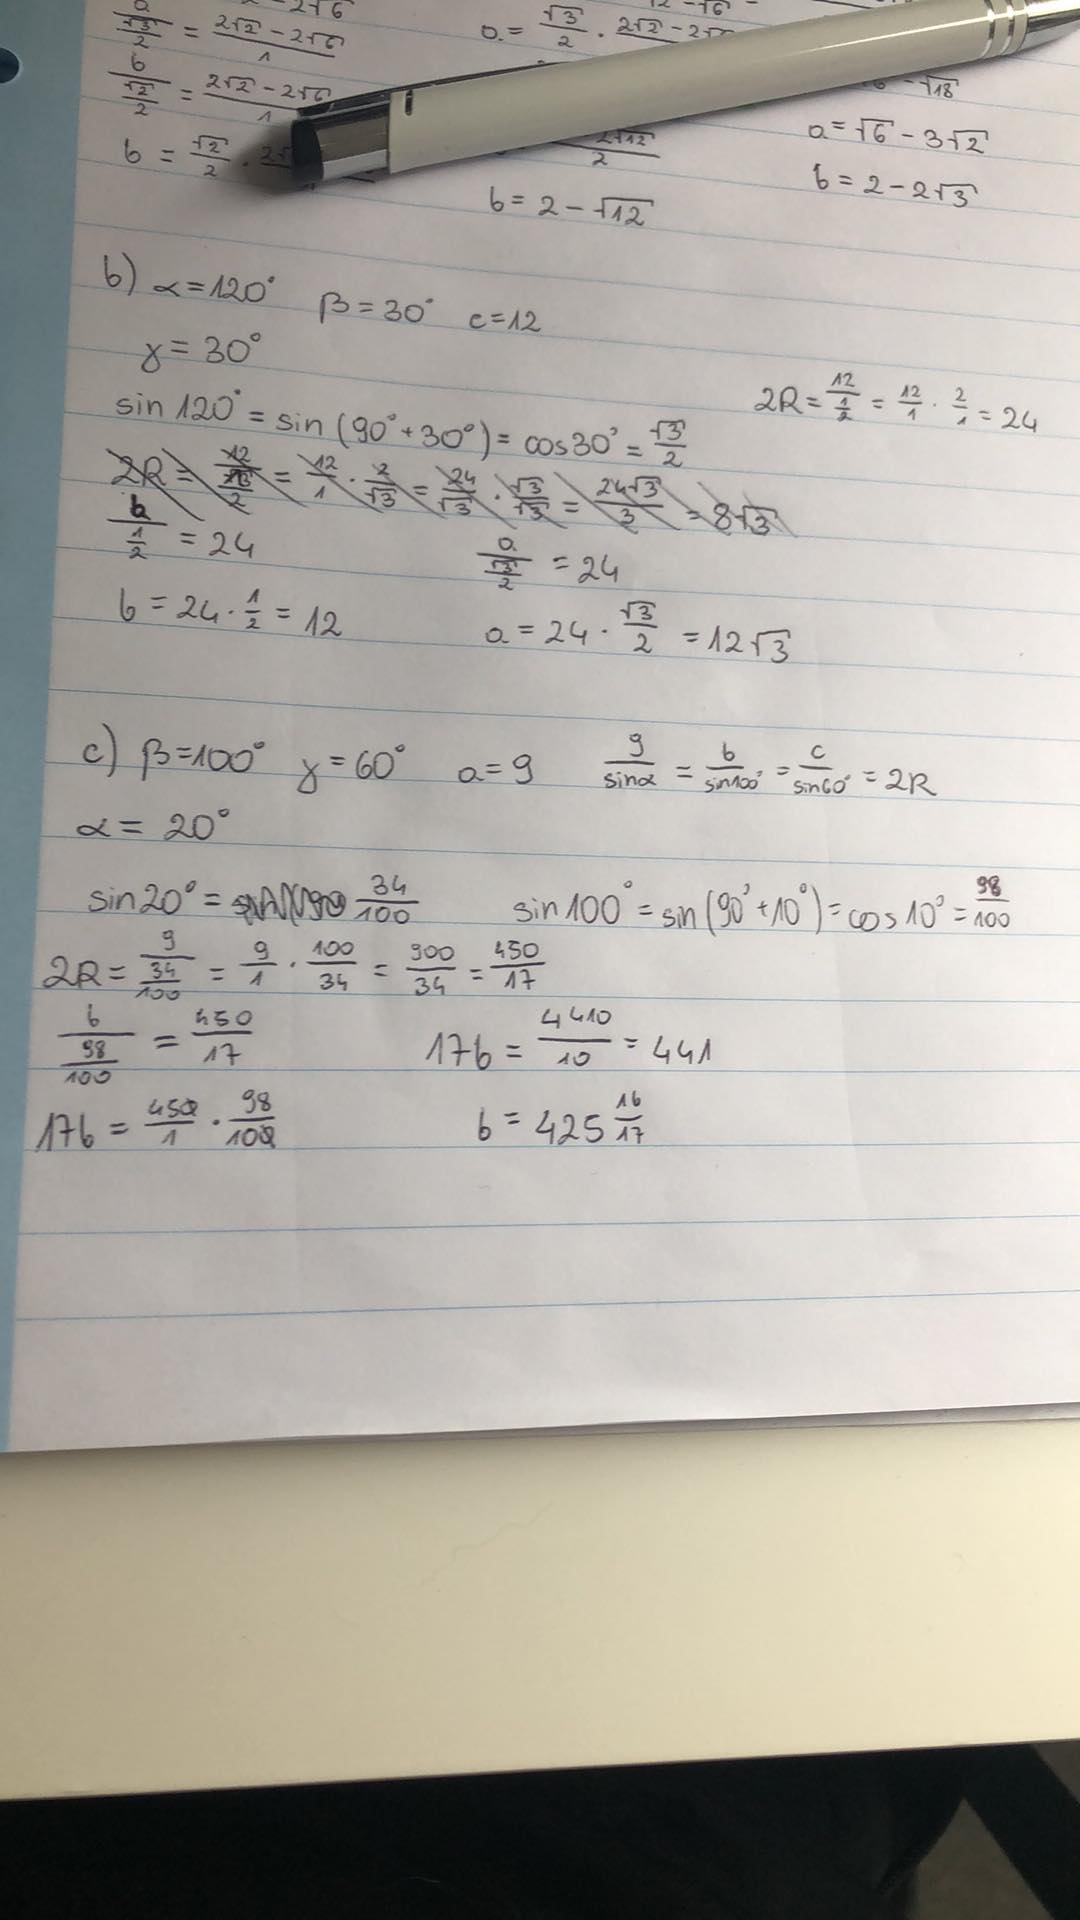 a/(√3/2) = (2√2 - 2√6)/1
a = √3/2 ·
b/(√2/2) = (2√2 - 2√6)/1
- √18
b = √2/2 ·
2√12/2
a = √6 - 3√2
b = 2 - √12
b = 2 - 2√3
b) α = 120° β = 30° c = 12
γ = 30°
2R = 12/(1/2) = 12/1 · 2/1 = 24
sin 120° = sin (90° + 30°) = cos 30° = √3/2
2R = 12/(√3/2) = 12/1 · 2/√3 = 24/√3 · √3/√3 = 24√3/3 = 8√3
b/(1/2) = 24
a/(√3/2) = 24
b = 24 · 1/2 = 12
a = 24 · √3/2 = 12√3
c) β = 100° γ = 60° a = 9 9/sinα = b/sin100° = c/sin60° = 2R
α = 20°
sin 20° = 34/100 sin 100° = sin (90° + 10°) = cos 10° = 98/100
2R = 9/(34/100) = 9/1 · 100/34 = 900/34 = 450/17
b/(98/100) = 450/17
17b = 4410/10 = 441
17b = 450/1 · 98/100
b = 425 16/17